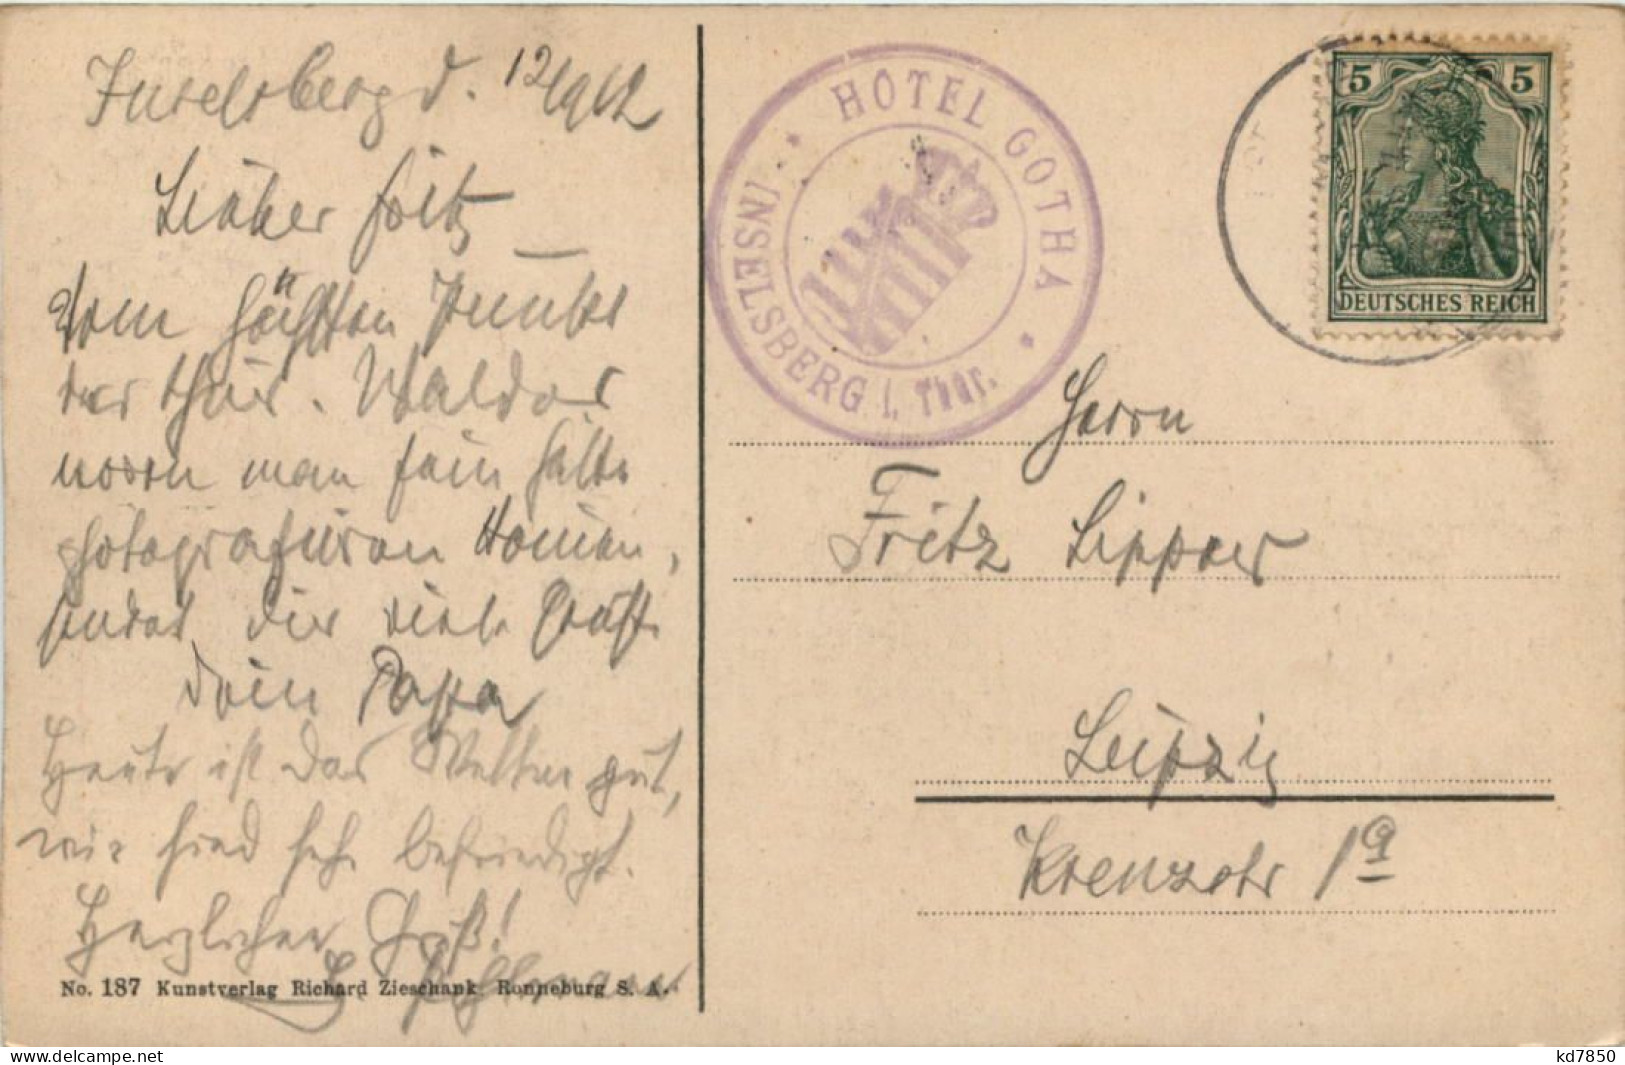 Inselsberg d. 12/9 12
Lieber Fritz
Vom höchsten Punkte
des Thür. Waldes
woven man sein hätte
photografieren können,
sendet dir viele Grüße
Dein Papa
Heute ist das Wetter gut,
wir sind sehr befriedigt.
Herzlichen Gruß!
No. 187 Kunstverlag Richard Zieschank, Ronneburg S. A.
* HOTEL GOTHA *
INSELSBERG i. Thür.
5 5
DEUTSCHES REICH
Herrn
Fritz Lipper
Leipzig
Kreuzstr 1a
www.delcampe.net
kd7850